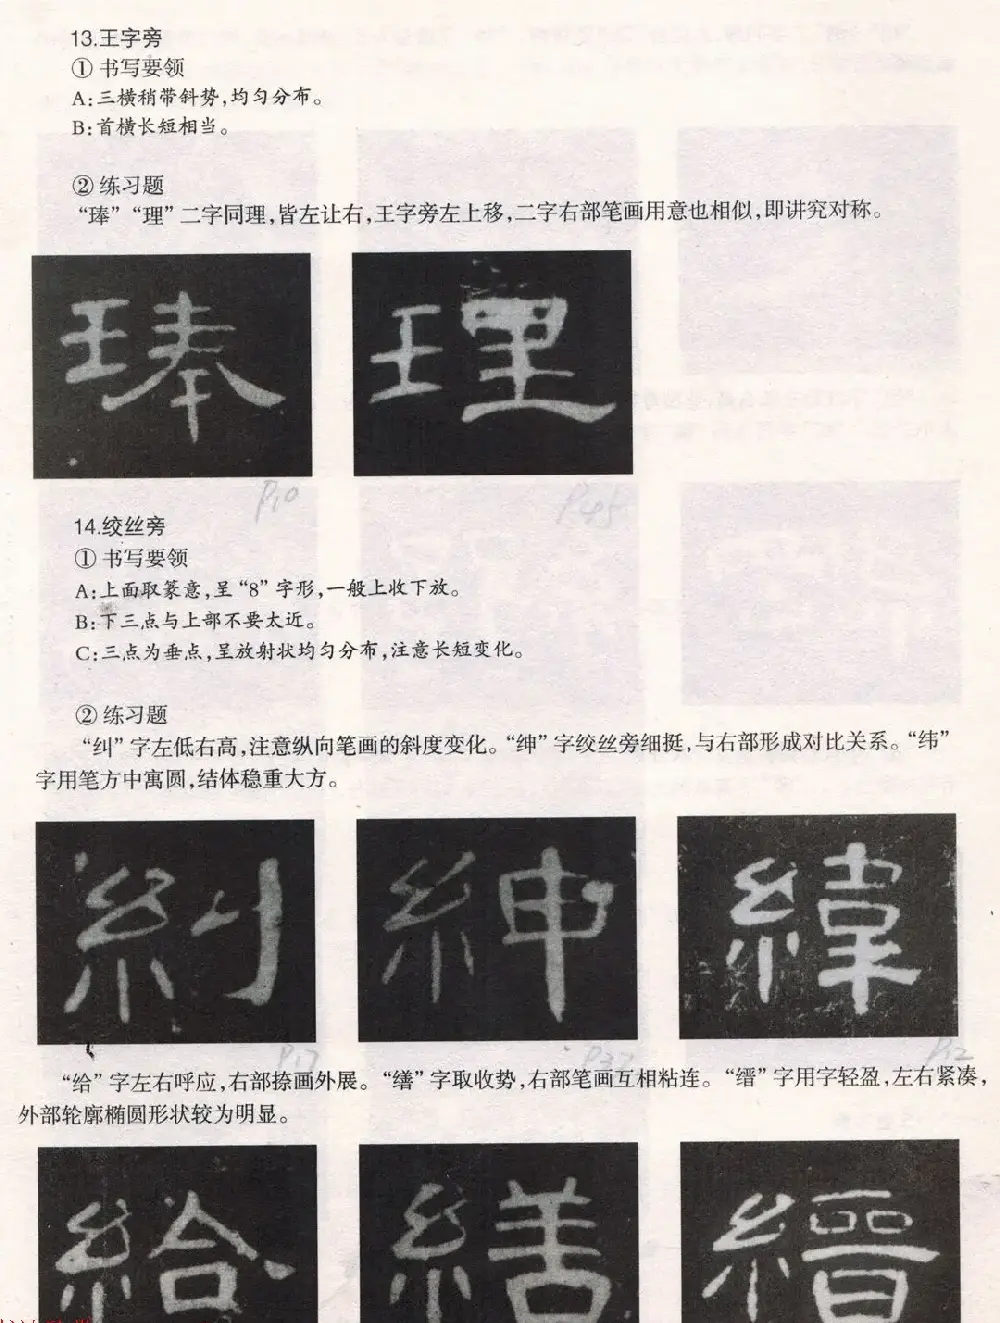 13.王字旁
① 书写要领
A:三横稍带斜势,均匀分布。
B:首横长短相当。
② 练习题
“琫”“理”二字同理,皆左让右,王字旁左上移,二字右部笔画用意也相似,即讲究对称。
琫 理
P10 P45
14.绞丝旁
① 书写要领
A:上面取篆意,呈“8”字形,一般上收下放。
B:下三点与上部不要太近。
C:三点为垂点,呈放射状均匀分布,注意长短变化。
② 练习题
“纠”字左低右高,注意纵向笔画的斜度变化。“绅”字绞丝旁细挺,与右部形成对比关系。“纬”
字用笔方中寓圆,结体稳重大方。
糾 紳 緯
P17 P37 P12
“给”字左右呼应,右部捺画外展。“缮”字取收势,右部笔画互相粘连。“缙”字用字轻盈,左右紧凑,
外部轮廓椭圆形状较为明显。
給 繕 縉